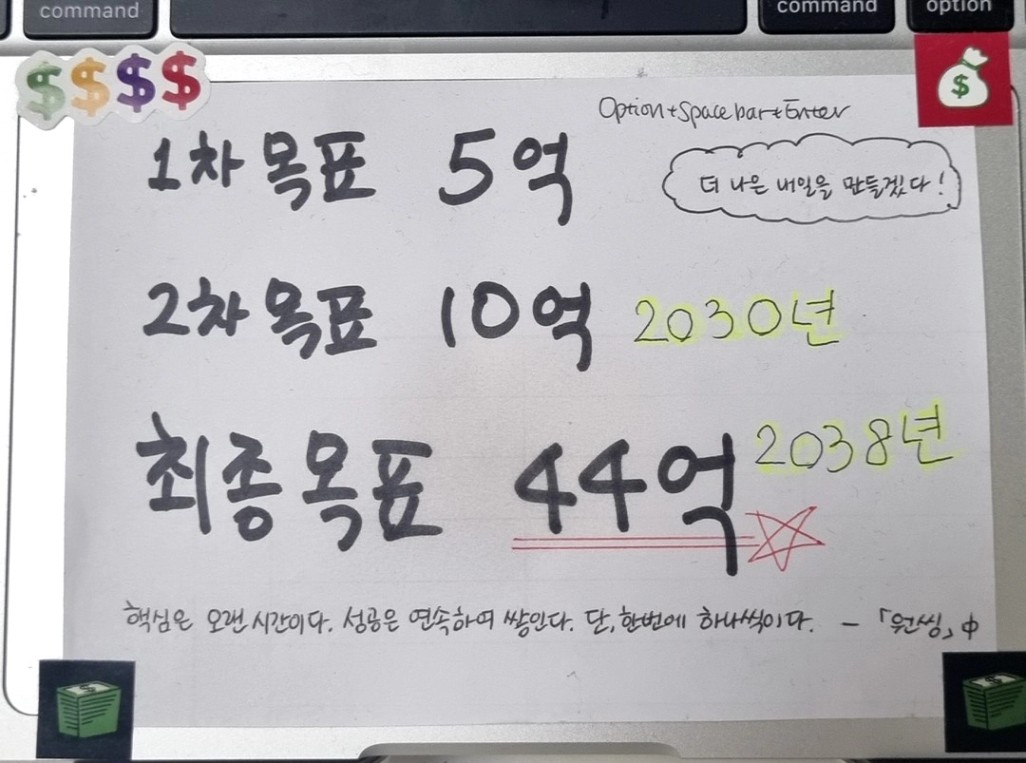 command
command
option
$$$$
$
Option+Spacebar+Enter
1차 목표 5억
더 나은 내일을 만들겠다!
2차 목표 10억 2030년
최종목표 44억 2038년
핵심은 오랜 시간이다. 성공은 연속하여 쌓인다. 단, 한번에 하나씩이다. - 「원씽」中
$
$